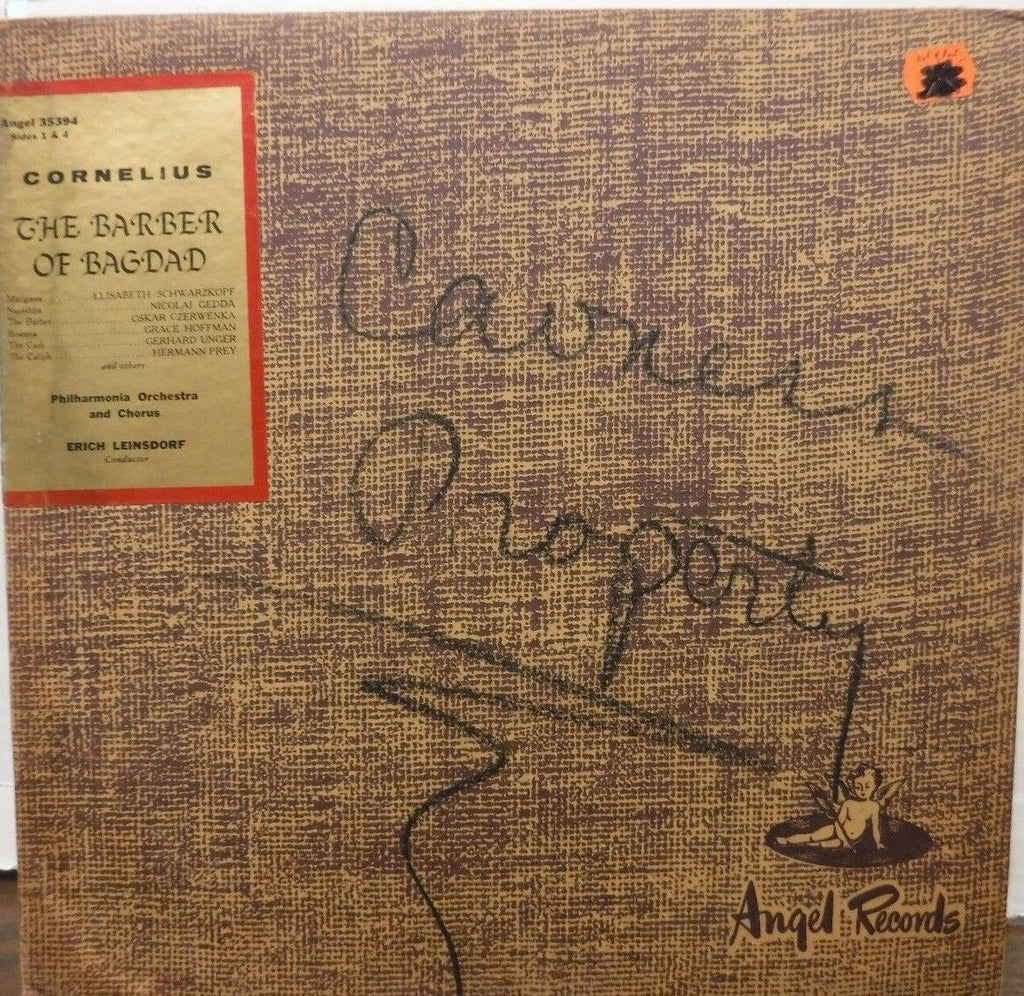 Angel 35394
Sides 1 & 4
CORNELIUS
THE BARBER
OF BAGDAD
Margiana ........ ELISABETH SCHWARZKOPF
Nureddin ........ NICOLAI GEDDA
The Barber ........ OSKAR CZERWENKA
Bostana ........ GRACE HOFFMAN
The Cadi ........ GERHARD UNGER
The Caliph ........ HERMANN PREY
and others
Philharmonia Orchestra
and Chorus
ERICH LEINSDORF
Conductor
Property
Angel Records